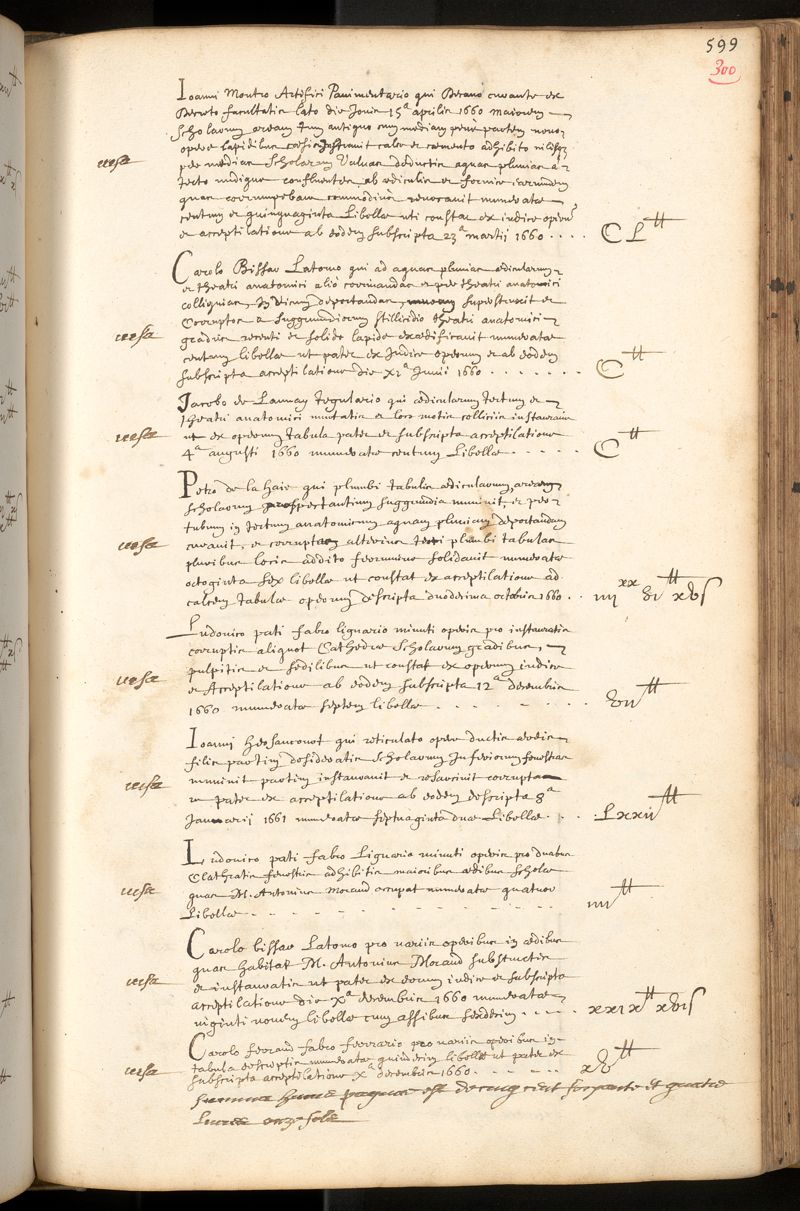 599
300
Ioanni Montro Artifici Pavimentario qui Decano curante ex
Decreto facultatis lato die Jouis 15ª aprilis 1660 maiorem
Scholarum aream tum antiquo tum mediam pene partem nouo
opere lapidibus instrauit calce et cemento adhibito
per medias Scholarum Valuas deductis aquas pluuias a
tecto undique confluentes ab ediculis et fornice earumdem
quas corrumpebant commodius reuocauit numeratæ
centum et quinquaginta Libellæ uti constat ex indice operum
et acceptilatione ab eodem subscripta 23ª martij 1660 . . . . C L ₶
uersa
Carolo Bissar Latomo qui ad aquas pluuias ædicularum
et theatri anatomici alio coriuandas et per theatri anatomici
colliquias, deportandas, superstruxit et
Corruptos a suggrundiorum stillicidio theatri anatomici
gradus recenti et solido lapide exædificauit numeratæ
centum libellæ ut patet ex Indice operum et ab eodem
subscripta acceptilatione die Junii 1660 . . . . . . . C ₶
uersa
Jacobo de Launay tegulario qui ædicularum tectum et
theatri anatomici mutatis et loco motis colliciis instaurauit
ut ex operum tabula patet et subscripta acceptilatione
4ª augusti 1660 numeratæ centum Libellæ . . . . . C ₶
uersæ
Petro de la haie qui plumbi tabulis ædicularum, aream
scholarum prospectantium suggrundia muniuit, et per
tubum in tectum anatomicum aquam pluuiam deportandam
curauit, et corruptas alterius tecti plumbi tabulas
pluribus locis addito ferrumine solidauit numeratæ
octoginta sex libellæ ut constat ex acceptilatione ad
calcem tabulæ operum descripta duodecima octobris 1660 . . iiij xx vi ₶ xvs
uersæ
Ludouico pati fabro lignario minuti operis pro instauratis
corruptis aliquot Cathedræ Scholarum gradibus,
pulpitis et sedilibus ut constat ex operum indice
et Acceptilatione ab eodem subscripta 12ª decembris
1660 numeratæ septem libellæ . . . . . . . . vii ₶
uersæ
Ioanni qui reticulato opere ductis æreis
filis partim desideratis Scholarum Inferiorum fenestras
muniuit partim instaurauit et resarciuit corruptas
ut patet ex acceptilatione ab eodem descripta 8ª
Januarij 1661 numeratæ septuaginta duæ Libellæ . . . Lxxii ₶
uersæ
Ludouico pati fabro Lignario minuti operis pro duabus
Clathratis fenestris adhibitis maioribus ædibus scholæ
quas M. Antonius Morand occupat numeratæ quatuor
Libellæ . . . . . . . . . . iiii ₶
uersæ
Carolo bissar Latomo pro uariis operibus in ædibus
quas habitat M. Antonius Morand substructis
et instauratis ut patet ex eorum indice et subscripta
acceptilatione die Xª decembris 1660 numeratæ
uiginti nouem libellæ cum assibus sexdecim . . . . xxix ₶ xvis
uersa
Carolo ferrand fabro ferrario pro uariis operibus in
tabula descriptis numeratæ quindecim libellæ ut patet ex
subscripta acceptilatione Xª decembris 1660 . . . . . xv ₶
uersa
summa huius paginæ est de cinq cent soixante et quatre
Liures onze sols